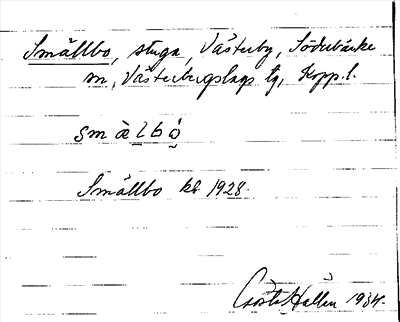 Smällbo, stuga, Västerby, Söderbärke
sn, Västerbergslags tg, Kopp. l.
smàlbó̤
Smällbo kb 1928.
Gösta Hallén 1934.